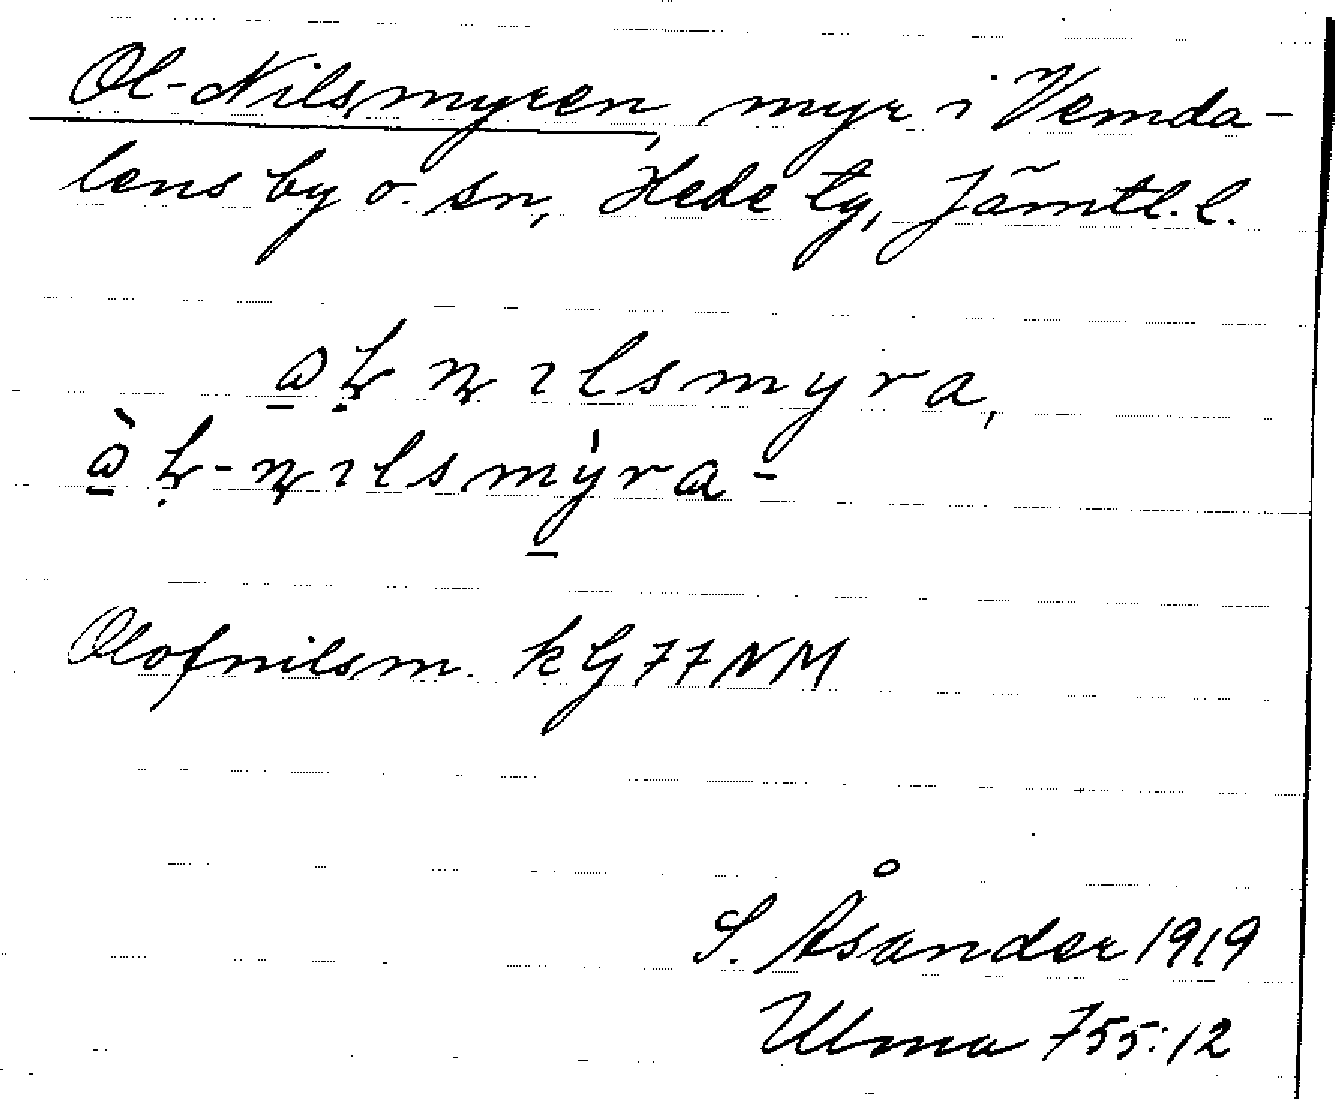 Ol-Nilsmyren, myr i Vemda-
lens by o. sn, Hede tg, Jämtl. l.
Olofnilsm. kG77NM
S. Åsander 1919
Ulma 755:12